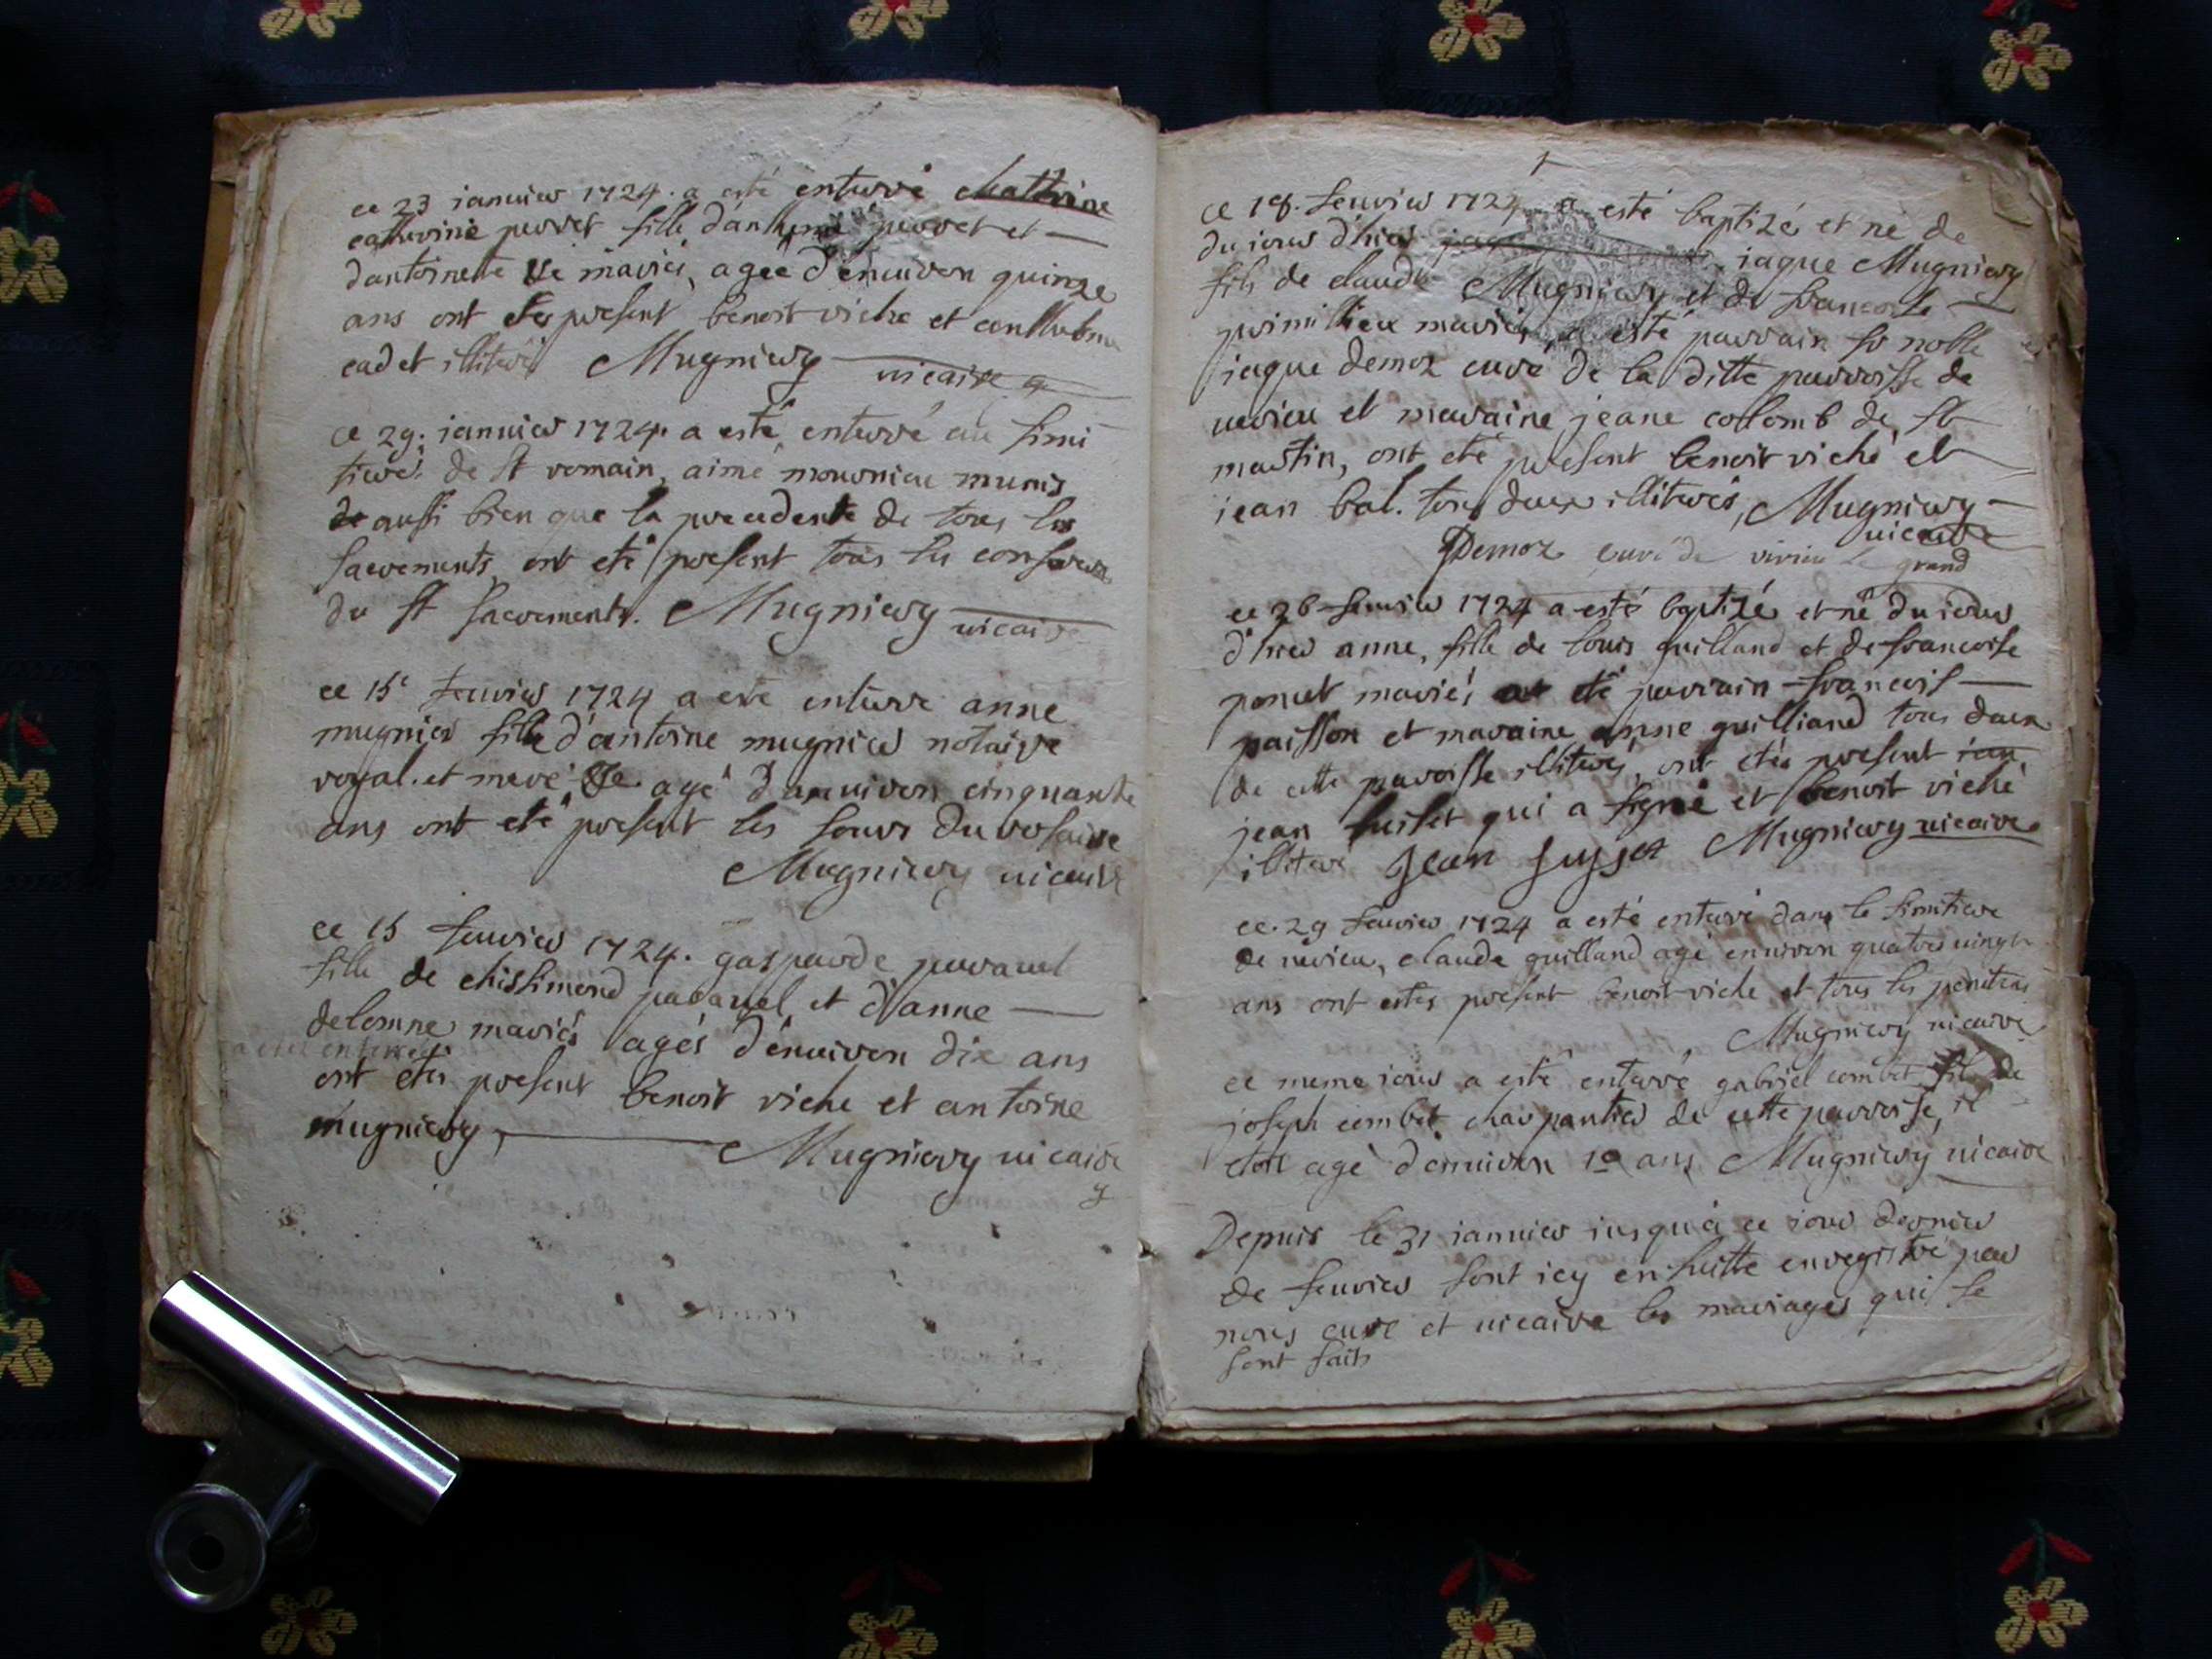 ce 23 ianuier 1724. a esté enterré chathrine
catherine perret fille danthemé perret et
dantoinette mariés, agée d'enuiron quinze
ans ont present benoit viche et
cadet illiteré Mugniery vicaire
ce 29. ianuier 1724. a esté enterré au simi
tiere de st romain, aimé mournieu munis
de aussi bien que la precedente de tous les
sacrements, ont eté present tous les confreres
du st sacrements. Mugniery vicaire
ce 15e feurier 1724 a esté enterré anne
mugnier fille d'antoine mugnier notaire
royal. et agé d'enuiron cinquante
ans ont eté present les seurs du rosaire
Mugniery vicaire
ce 15 feurier 1724. gasparde paravel
fille de chistimond paravel et d'anne
delomne mariés agés d'enuiron dix ans
a eté enterrée
ont etés present benoit viche et antoine
mugniery, Mugniery vicaire
ce feurier 1724 a esté baptizé et né de
du iour d'hier iaque Mugniery
fils de claude Mugniery et de francoise
primillieu mariés, a esté parrain sr noble
iaque demoz curé de la ditte parroisse de
uirieu et maraine jeane collomb de st
martin, ont eté present benoit viché et
jean bal. tous deux illiterés, Mugniery
vicaire
Demoz curé de virieu le grand
ce 26 feurier 1724 a esté baptizé et né du iour
d'hier anne, fille de louis guilland et de francoise
poncet mariés a eté parrain francois
paisson et maraine anne guilliand tous deux
de cette paroisse illiterés, ont etés present ian
jean suiset qui a signé et benoit viché
illiteré Jean suyset Mugniery vicaire
ce. 29 feurier 1724 a esté enterré dans le simitiere
de uirieu, claude guilland agé enuiron quatre uingt
ans ont estés present benoit viche et tous les penitens
Mugniery vicaire
ce meme iour a esté enterré gabriel combet fils de
joseph combet charpantier de cette parroisse, il
etoit agé d'enuiron ans Mugniery vicaire
Depuis le 31 ianuier iusqu'a ce iour dernier
de feurier sont icy en suitte enregistré par
nous curé et uicaire les mariages qui se
sont faits